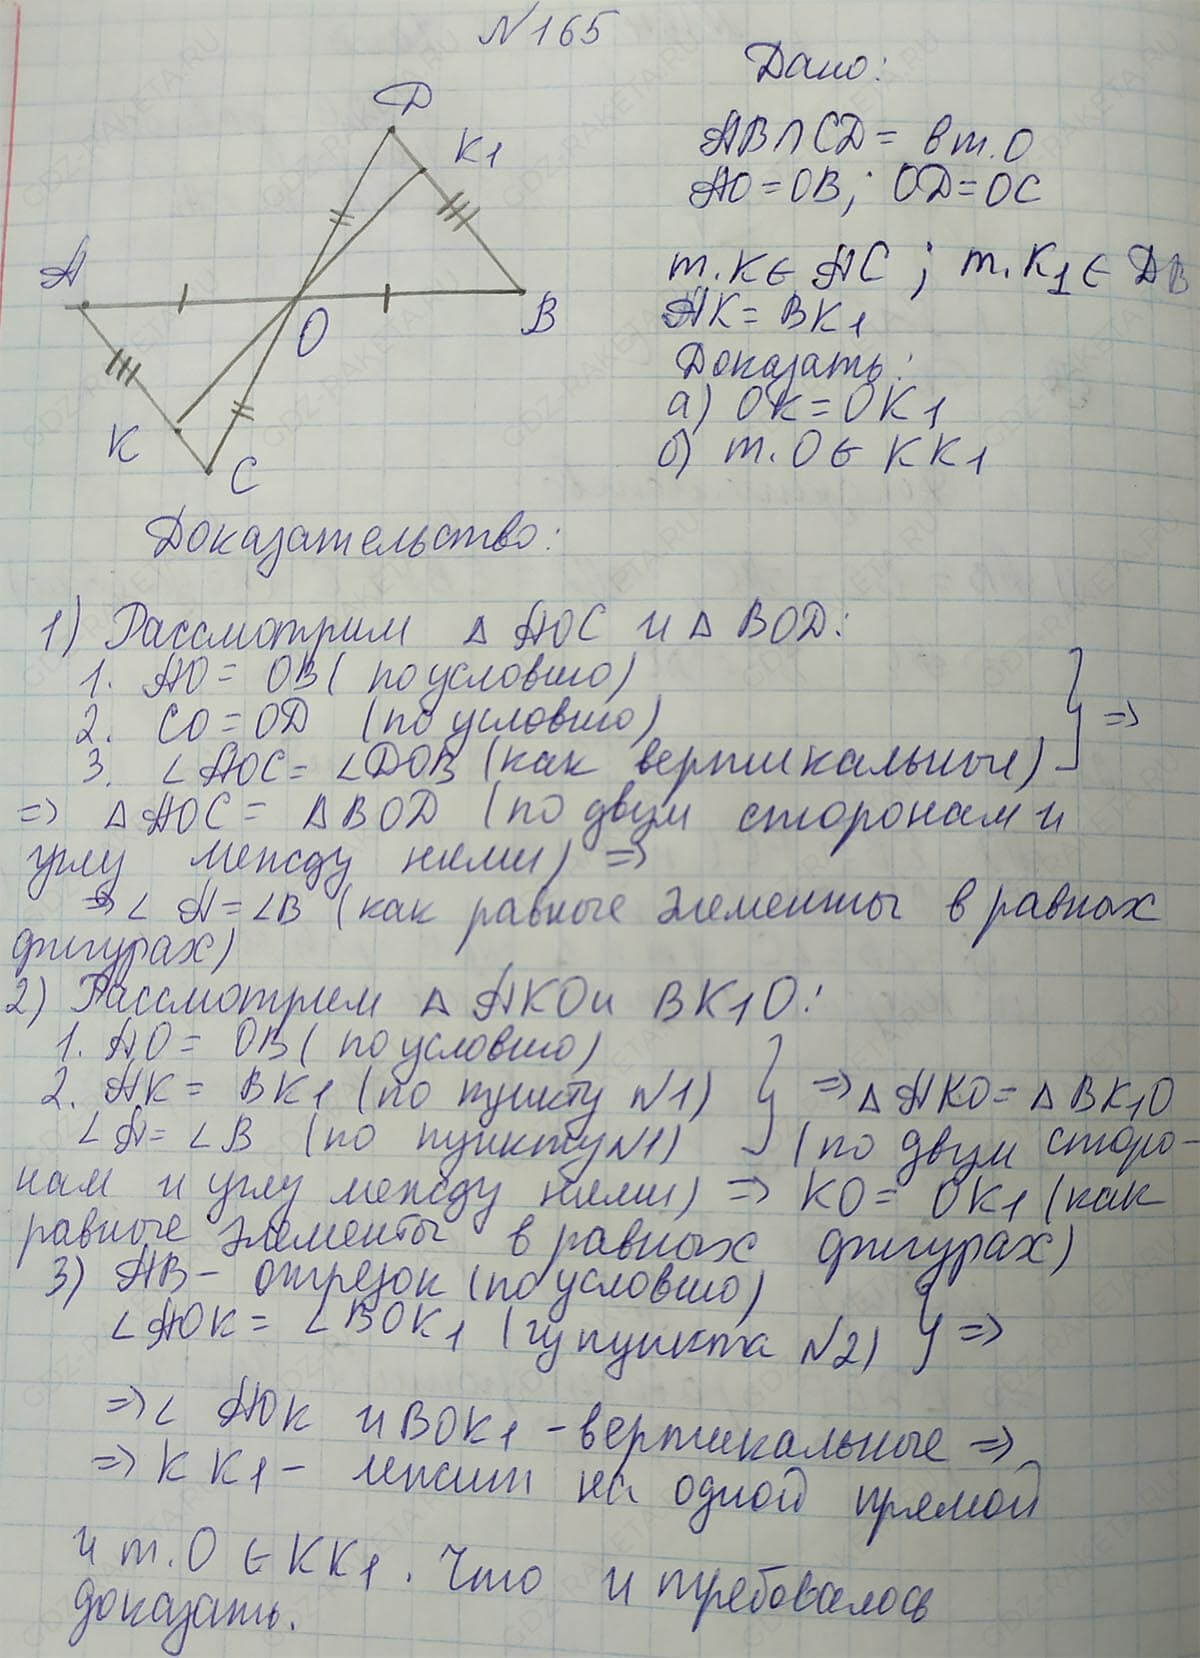 №165
Дано:
AB∩CD= в т.O
AO=OB; OD=OC
т.K∈ AC; т.K1∈ DB
AK=BK1
Доказать:
а) OK=OK1
б) т.O∈ KK1
D
K1
A
O
B
K
C
Доказательство:
1) Рассмотрим △ AOC и △ BOD:
1. AO= OB( по условию)
2. CO=OD (по условию)
3. ∠AOC= ∠DOB (как вертикальные) } =>
=> △ AOC= △BOD (по двум сторонам и
углу между ними) =>
=>∠ A=∠B (как равные элементы в равных
фигурах)
2) Рассмотрим △ AKO и BK1O:
1. AO= OB( по условию)
2. AK= BK1 (по пункту №1) } =>△ AKO= △BK1O
∠A= ∠B (по пункту №1) (по двум сторо-
нам и углу между ними) => KO= OK1 (как
равные элементы в равных фигурах)
3) AB- отрезок (по условию)
∠AOK= ∠BOK1 (из пункта №2) } =>
=>∠ AOK и BOK1 -вертикальные =>
=>KK1- лежит на одной прямой
и т.O∈KK1. Что и требовалось
доказать.
GDZ-RAKETA.RU